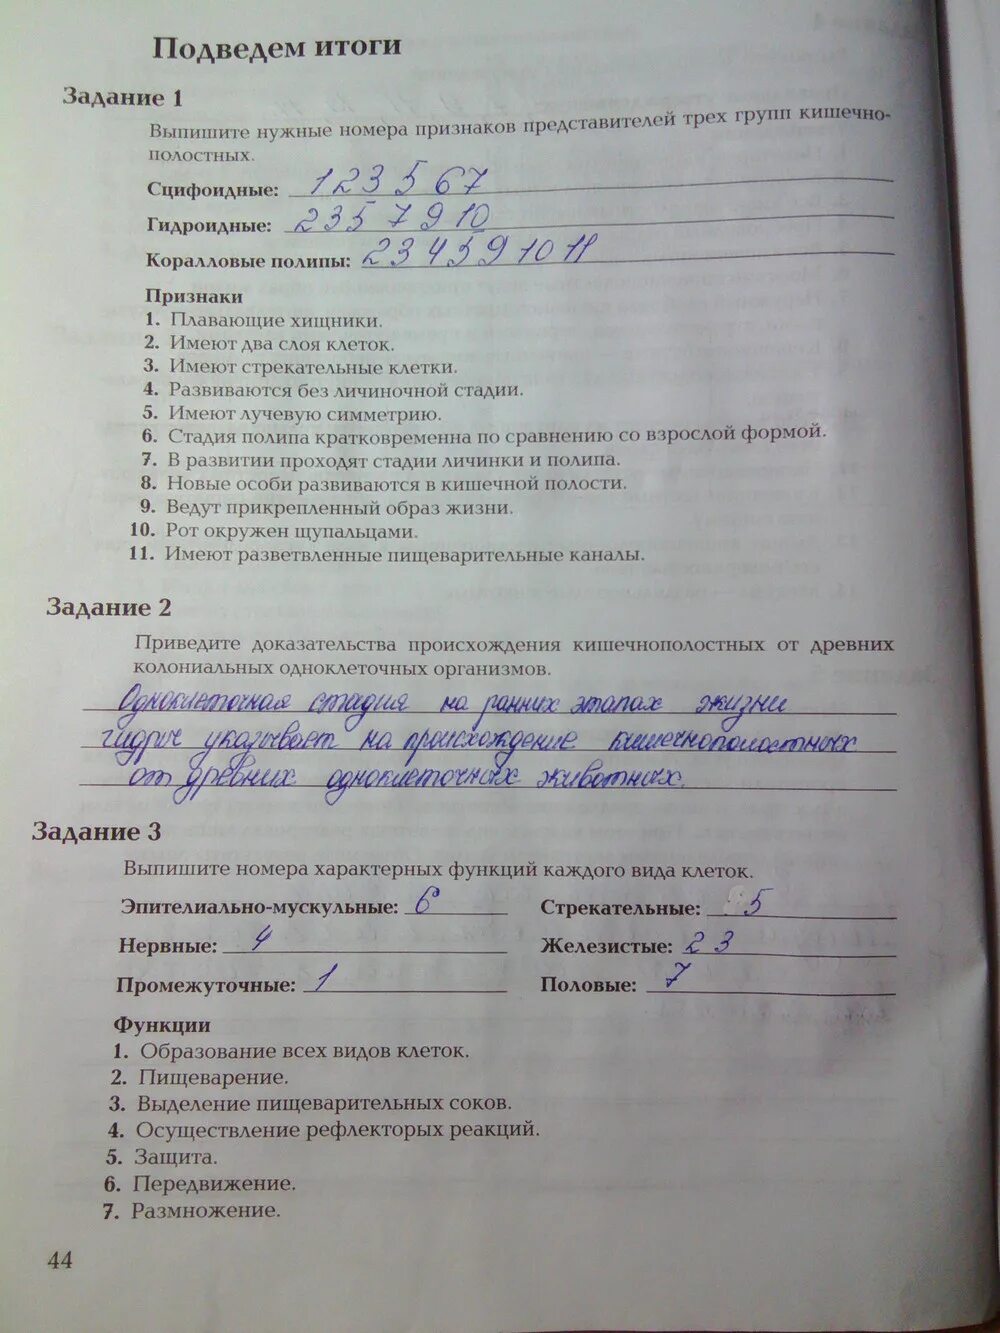 Подведем итоги
Задание 1
Выпишите нужные номера признаков представителей трех групп кишечно-
полостных.
Сцифоидные: 1 2 3 5 6 7
Гидроидные: 2 3 5 7 9 10
Коралловые полипы: 2 3 4 5 9 10 11
Признаки
1. Плавающие хищники.
2. Имеют два слоя клеток.
3. Имеют стрекательные клетки.
4. Развиваются без личиночной стадии.
5. Имеют лучевую симметрию.
6. Стадия полипа кратковременна по сравнению со взрослой формой.
7. В развитии проходят стадии личинки и полипа.
8. Новые особи развиваются в кишечной полости.
9. Ведут прикрепленный образ жизни.
10. Рот окружен щупальцами.
11. Имеют разветвленные пищеварительные каналы.
Задание 2
Приведите доказательства происхождения кишечнополостных от древних
колониальных одноклеточных организмов.
Одноклеточная стадия на ранних этапах жизни
гидры указывает на происхождение кишечнополостных
от древних одноклеточных животных.
Задание 3
Выпишите номера характерных функций каждого вида клеток.
Эпителиально-мускульные: 6 Стрекательные: 5
Нервные: 4 Железистые: 2 3
Промежуточные: 1 Половые: 7
Функции
1. Образование всех видов клеток.
2. Пищеварение.
3. Выделение пищеварительных соков.
4. Осуществление рефлекторых реакций.
5. Защита.
6. Передвижение.
7. Размножение.
44